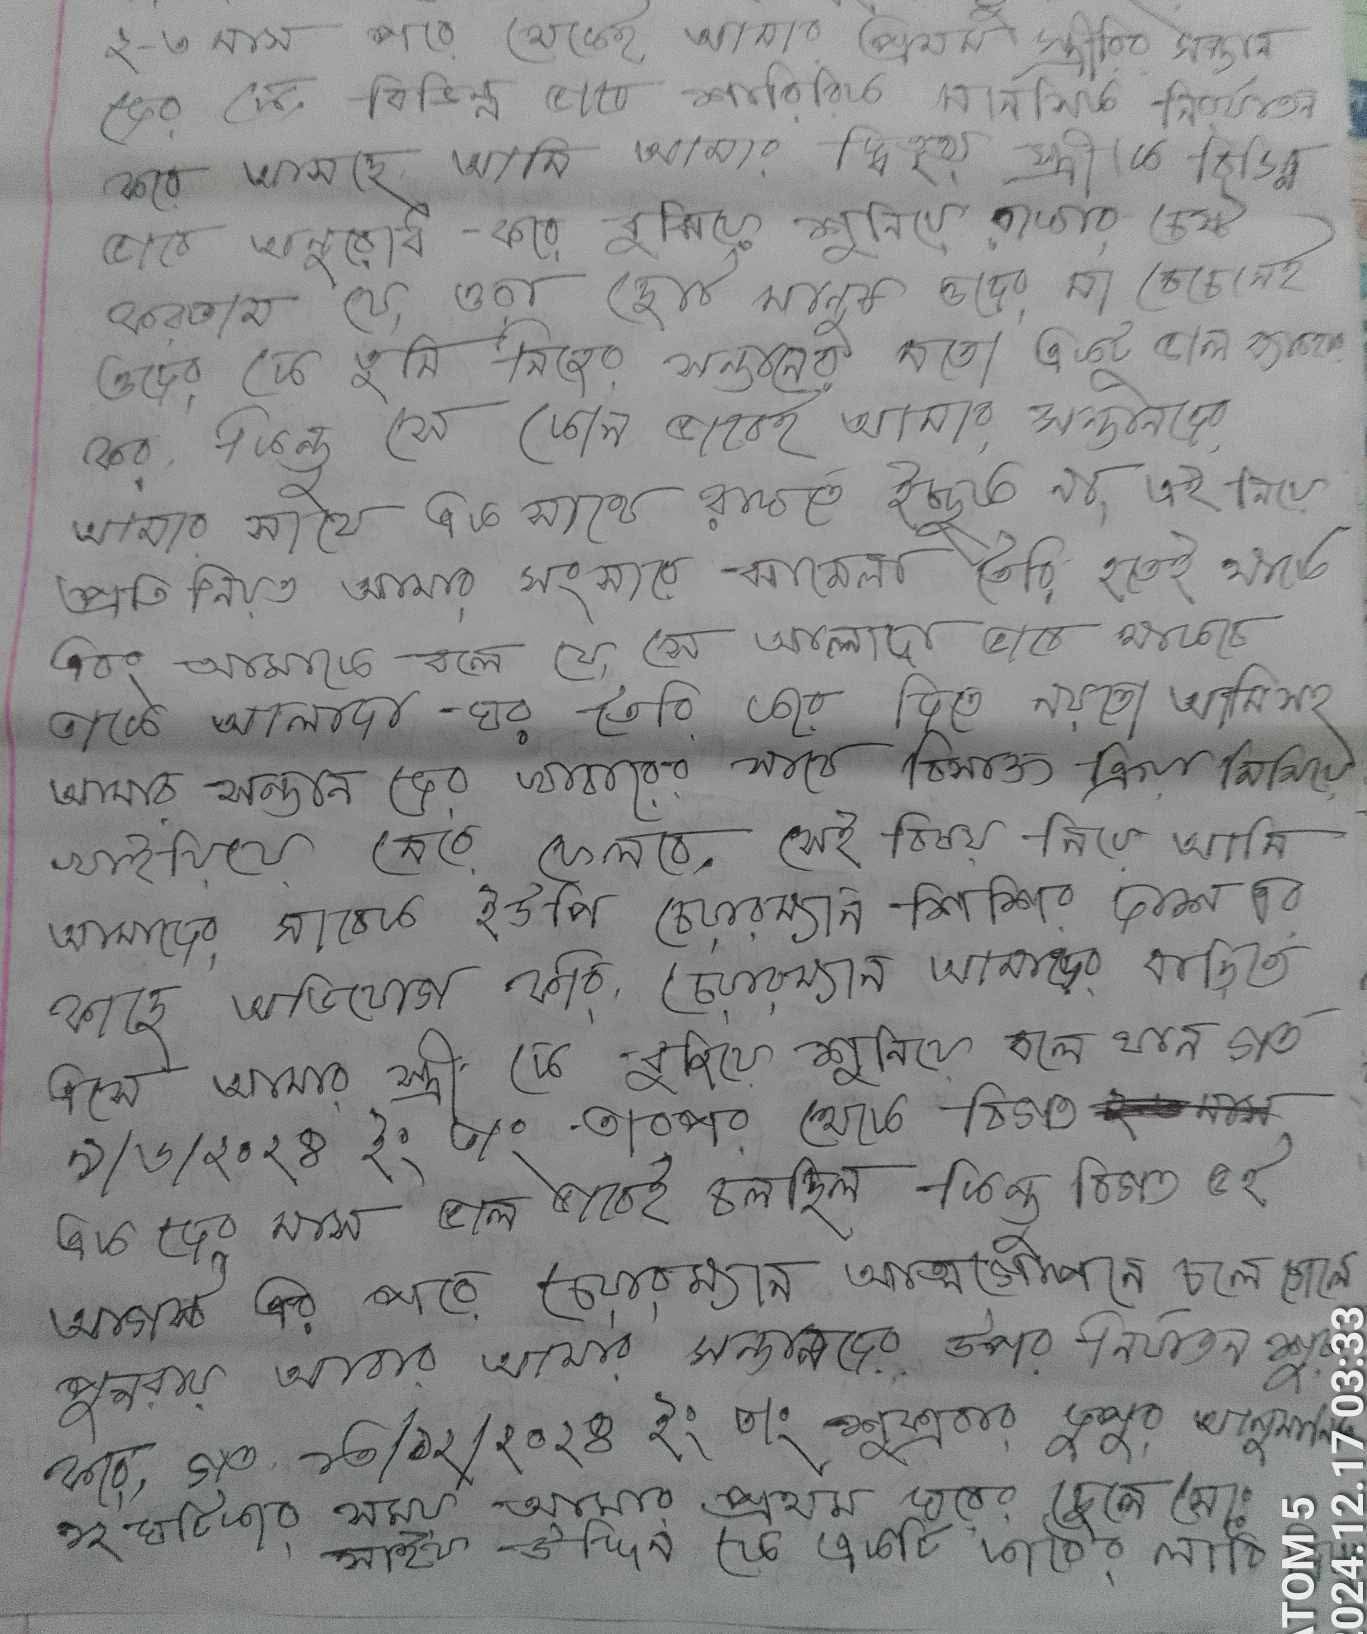 ২-৩ মাস পরে থেকেই আমার প্রথম স্ত্রীর সন্তান
দের কে বিভিন্ন ভাবে শারিরিক মানসিক নির্যাতন
করে আসছে আমি আমার দ্বিতীয় স্ত্রী কে বিভিন্ন
ভাবে অনুরোধ করে বুঝিয়ে শুনিয়ে রাখার চেষ্টা
করতাম যে, ওরা ছোট মানুষ ওদের মা বেচে নেই
ওদের কে তুমি নিজের সন্তানের মতো একটু ভাল ব্যবহার
কর, কিন্তু সে কোন ভাবেই আমার সন্তানদের
আমার সাথে এক সাথে রাখতে ইচ্ছুক নয়, এই নিয়ে
প্রতি নিয়ত আমার সংসারে ঝামেলা তৈরি হতেই থাকে
এবং আমাকে বলে যে, সে আলাদা ভাবে থাকবে
তাকে আলাদা ঘর তৈরি করে দিতে নয়তো আমিসহ
আমার সন্তান দের খাবারের সাথে বিষাক্ত মিশিয়ে
খাইয়িয়ে মেরে ফেলবে, সেই বিষয় নিয়ে আমি
আমাদের সাবেক ইউপি চেয়ারম্যান শিশির দাশ এর
কাছে অভিযোগ করি, চেয়ারম্যান আমাদের বাড়িতে
এসে আমার স্ত্রী কে বুঝিয়ে শুনিয়ে বলে যান গত
৯/৬/২০২৪ ইং তাং তারপর থেকে বিগত
এক দেড় মাস ভাল ভাবেই চলছিল কিন্তু বিগত ৫ই
আগস্ট এর পরে চেয়ারম্যান আত্মগোপনে চলে গেলে
পুনরায় আবার আমার সন্তানদের উপর নির্যাতন শুরু
করে, গত /১২/২০২৪ ইং তাং শুক্রবার দুপুর আনুমানিক
১২ ঘটিকার সময় আমার প্রথম ঘরের ছেলে মোঃ
সাইফ উদ্দিন কে একটি কাঠের লাঠি
ATOM 5
2024.12.17 03:33